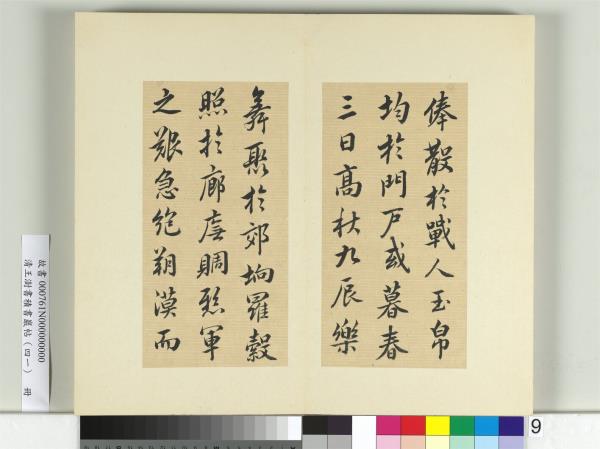 俸散於戰人玉帛
均於門戶或暮春
三日高秋九辰樂
舞聚於郊坰羅縠
照於廊廡賙懸軍
之艱急絶朔漠而
故書 000761N000000000
清王澍書積書巖帖(四一) 冊
9